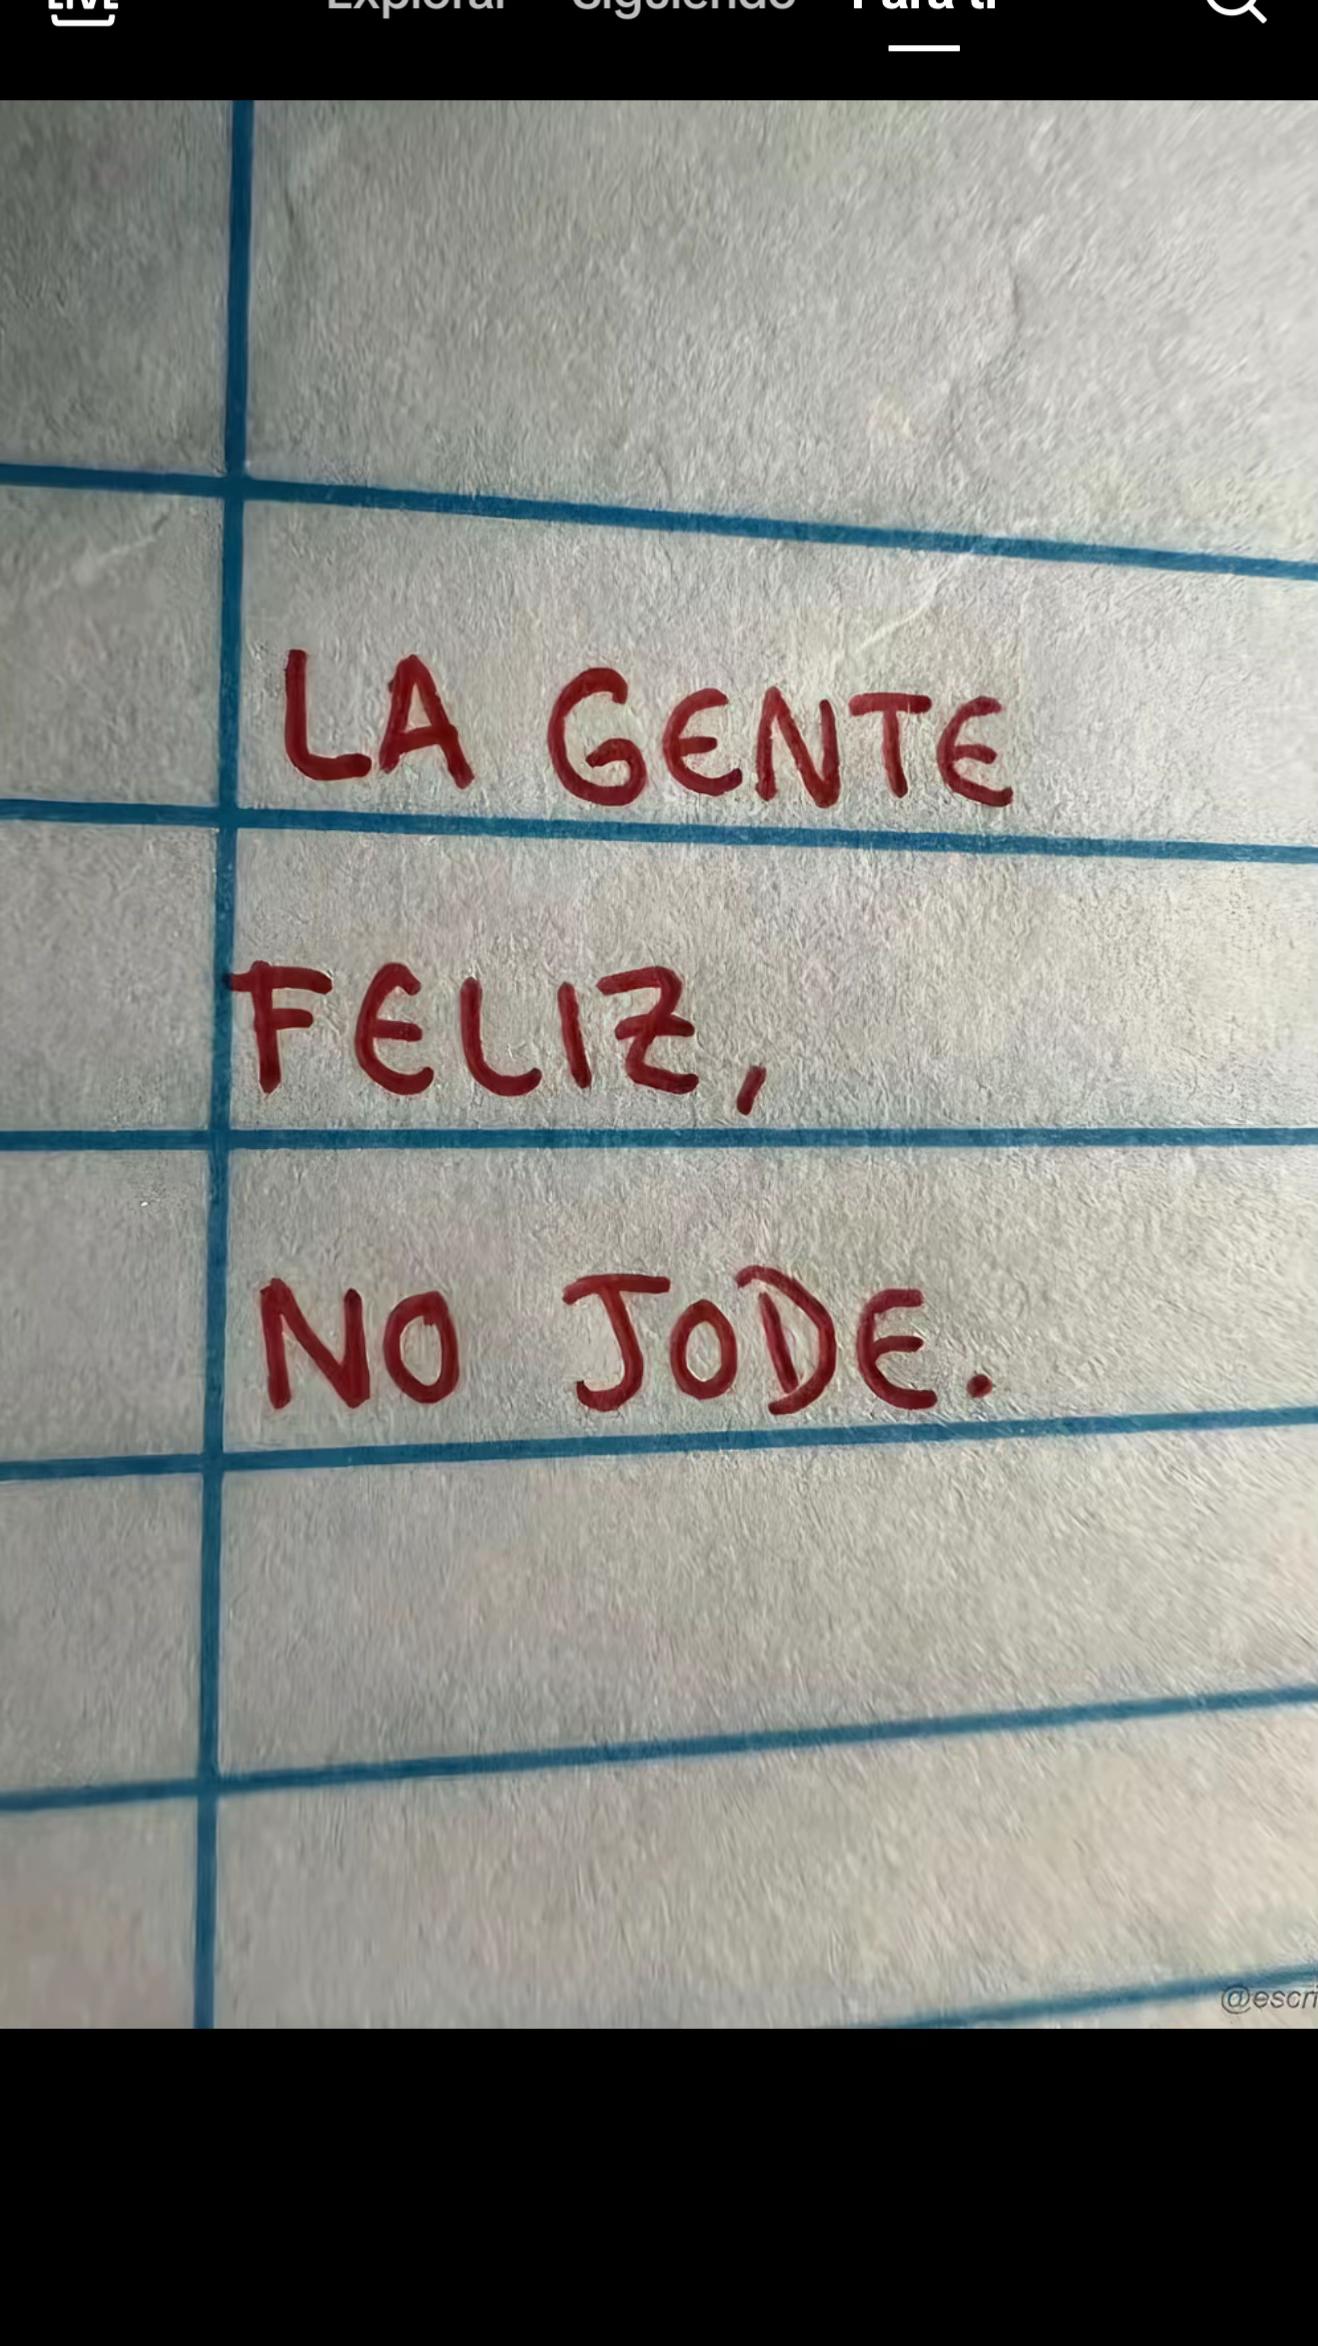 LIVE Explorar Siguiendo Para ti
LA GENTE
FELIZ,
NO JODE.
@escri